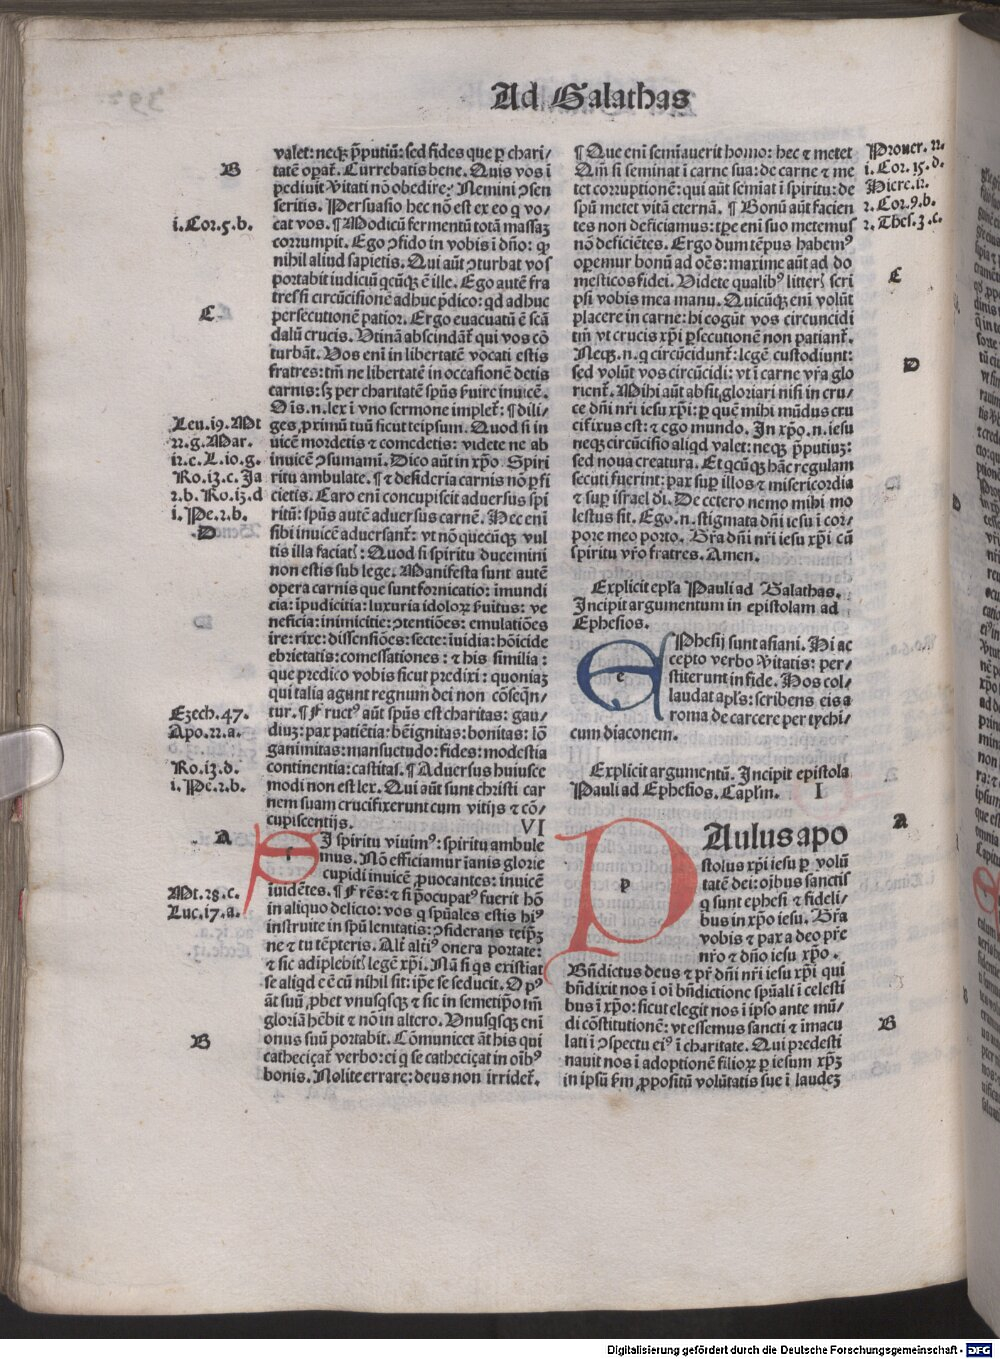 Ad Galathas
valet: neqꝫ p̃putiũ: sed fides que ꝑ chari/
tatẽ oꝑat᷑. Currebatis bene. Quis vos ĩ
pediuit ṽitati nõ obedire: Nemini ɔsen
seritis. Persuasio hec nõ est ex eo q̇ vo/
cat vos. ¶ Modicũ fermentũ totã massaꝫ
corrumpit. Ego ɔfido in vobis ĩ dño: ꝙ
nihil aliud sapietis. Qui aũt ɔturbat vos
portabit iudiciũ q̇cũqꝫ ẽ ille. Ego autẽ fra
tres si circũcisionẽ adhuc p̃dico: qd adhuc
persecutionẽ patior. Ergo euacuatũ ẽ scã
dalũ crucis. Vtinã abscindãt᷑ qui vos cõ
turbãt. Vos eni in libertatẽ vocati estis
fratres: tm̃ ne libertatẽ in occasionẽ detis
carnis: sꝫ per charitatẽ spũs ẜuire inuicẽ.
Oĩs .n. lex ĩ vno sermone implet᷑: ¶ dili/
ges ꝓximũ tuũ sicut teipsum. Quod si in
uicẽ mordetis ⁊ comedetis: videte ne ab
inuicẽ ɔsumami. Dico aũt in xp̃o. Spiri
ritu ambulate. ¶ ⁊ desideria carnis nõ ꝑfi
cietis. Caro eni concupiscit aduersus spi
ritũ: spũs autẽ aduersus carnẽ. Hec eni
sibi inuicẽ aduersant᷑: vt nõ quecũqꝫ vul
tis illa faciat᷑: Quod si spiritu ducemini
non estis sub lege. Manifesta sunt autẽ
opera carnis que sunt fornicatio: ĩmundi
cia: ĩpudicitia: luxuria idoloꝝ ẜuitus: ve
neficia: inimicitie: ɔtentiões: emulatiões
ire: rixe: dissensiões: secte: ĩuidia: hõicide
ebrietatis: comessationes: ⁊ his similia:
que predico vobis sicut predixi: quoniaꝫ
qui talia agunt regnum dei non cõseq̃n/
tur. ¶ Fructꝰ aũt spũs est charitas: gau/
diuꝫ: pax patiẽtia: bẽignitas: bonitas: lõ
ganimitas: mansuetudo: fides: modestia
continentia: castitas. ¶ Aduersus huiusce
modi non est lex. Qui aũt sunt christi car
nem suam crucifixerunt cum vitijs ⁊ cõ/
cupiscentijs. VI
SI spiritu viuimꝰ: spiritu ambule
mus. Nõ efficiamur ĩanis glorie
cupidi inuicẽ ꝓuocantes: inuicẽ
ĩuidẽtes. ¶ Frẽs: ⁊ si p̃occupatꝰ fuerit hõ
in aliquo delicto: vos q̇ spũales estis hiꝰ
instruite in spũ lenitatis: ɔsiderans teip̃ꝫ
ne ⁊ tu tẽpteris. Alt᷑ altiꝰ onera portate:
⁊ sic adiplebit᷑ legẽ xp̃i. Nã si q̇s existiat
se aliq̇d eẽ cũ nihil sit: ip̃e se seducit. Opꝰ
aũt suũ ꝓbet vnusq̇sqꝫ ⁊ sic in semetip̃o tm̃
gloriã hẽbit ⁊ nõ in altero. Vnusq̇sqꝫ eni
onus suũ portabit. Cõmunicet aũt his qui
catheciçat᷑ verbo: ei q̇ se catheciçat in oĩbꝰ
bonis. Nolite errare: deus non irridet᷑.
¶ Que eni semiauerit homo: hec ⁊ metet
Qm̃ si seminat ĩ carne sua: de carne ⁊ me
tet corruptionẽ: qui aũt semĩat ĩ spiritu: de
spũ metet vitã eternã. ¶ Bonũ aũt facien
tes non deficiamus: tp̃e eni suo metemus
nõ deficiẽtes. Ergo dum tẽpus habemꝰ
oꝑemur bonũ ad oẽs: maxime aũt ad do
mesticos fidei. Videte qualibꝰ litter᷑ scri
psi vobis mea manu. Quicũqꝫ eni volũt
placere in carne: hi cogũt vos circuncidi
tm̃ vt crucis xp̃i ꝑsecutionẽ non patiant᷑.
Neqꝫ .n. q̇ circũcidunt᷑: legẽ custodiunt:
sed volũt vos circũcidi: vt ĩ carne vr̃a glo
rient᷑. Mihi aũt absit gloriari nisi in cru/
ce dñi nr̃i iesu xp̃i: ꝑ quẽ mihi mũdus cru
cifixus est: ⁊ ego mundo. In xp̃o .n. iesu
neqꝫ circũcisio aliq̇d valet: neqꝫ p̃putiuꝫ:
sed noua creatura. Et q̇cũqꝫ hãc regulam
secuti fuerint: pax suꝑ illos ⁊ misericordia
⁊ suꝑ israel di. De cetero nemo mihi mo
lestus sit. Ego .n. stigmata dñi iesu ĩ cor/
pore meo porto. Gr̃a dñi nr̃i iesu xp̃i cũ
spiritu vr̃o fratres. Amen.
Explicit epl̃a Pauli ad Galathas.
Incipit argumentum in epistolam ad
Ephesios.
EPhesij sunt asiani. Hi ac
cepto verbo ṽitatis: per/
stiterunt in fide. Hos col/
laudat apl̃s: scribens eis a
roma de carcere per tychi/
cum diaconem.
Explicit argumentũ. Incipit epistola
Pauli ad Ephesios. Capl̃m. I
PAulus apo
stolus xp̃i iesu ꝑ volũ
tatẽ dei: oĩbus sanctis
q̇ sunt ephesi ⁊ fideli/
bus in xp̃o iesu. Gr̃a
vobis ⁊ pax a deo pr̃e
nr̃o ⁊ dño iesu xp̃o.
Bñdictus deus ⁊ pr̃ dñi nr̃i iesu xp̃i qui
bñdixit nos ĩ oĩ bñdictione spũali ĩ celesti
bus ĩ xp̃o: sicut elegit nos ĩ ipso ante mũ/
di cõstitutionẽ: vt essemus sancti ⁊ ĩmacu
lati ĩ ɔspectu eiꝰ ĩ charitate. Qui predesti
nauit nos ĩ adoptionẽ filioꝝ ꝑ iesum xp̃ꝫ
in ipsũ ẜm ꝓpositũ volũtatis sue ĩ laudeꝫ
B
i. Cor. 5. b.
C
Leu. 19. Mt
22. g. Mar.
12. c. L. 10. g.
Ro. 13. c. Ja
2. b. Ro. 13. d
i. Pe. 2. b.
D
Ezech. 47.
Apo. 22. a.
Ro. 13. d.
i. Pe. 2. b.
A
Mt. 28. c.
Luc. 17. a.
B
Prouer. 22.
i. Cor. 15. d.
Hiere. 12.
2. Cor. 9. b.
2. Thes. 3. c.
C
D
A
B
Digitalisierung gefördert durch die Deutsche Forschungsgemeinschaft - DFG